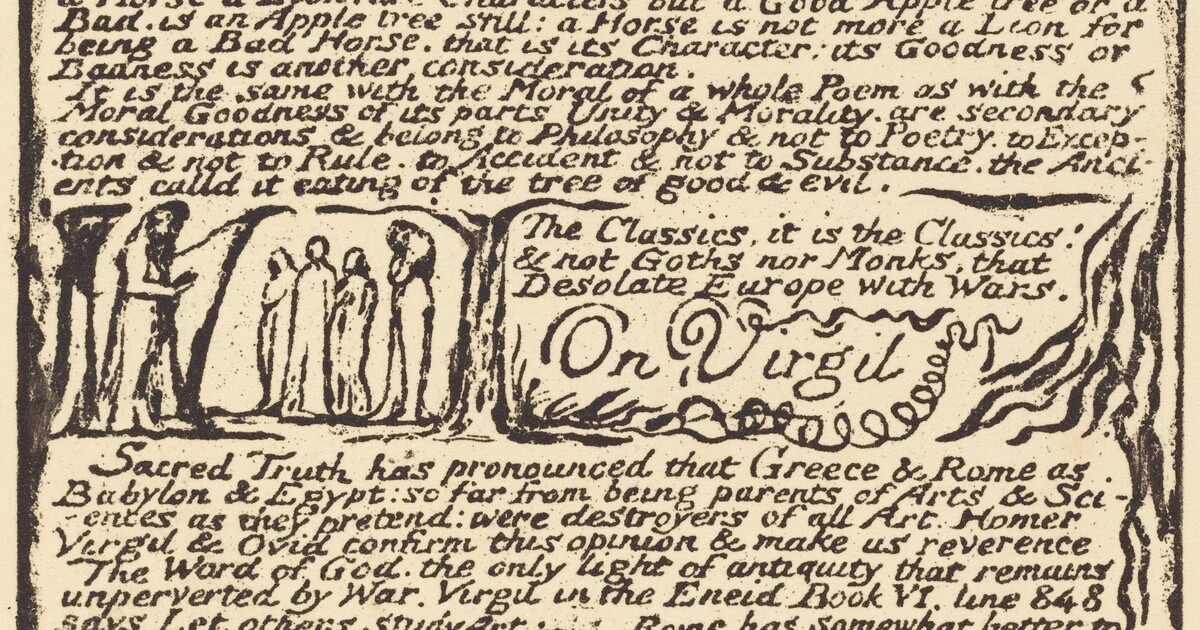 a Horse a Characters but a Good Apple tree or a
Bad, is an Apple tree still: a Horse is not more a Lion for
being a Bad Horse. that is its Character: its Goodness or
Badness is another consideration.
It is the same with the Moral of a whole Poem as with the
Moral Goodness of its parts Unity & Morality, are secondary
considerations & belong to Philosophy & not to Poetry. to Excep-
-tion & not to Rule. to Accident & not to Substance. the Anci-
ents calld it eating of the tree of good & evil.
The Classics, it is the Classics!
& not Goths nor Monks, that
Desolate Europe with Wars.
On Virgil
Sacred Truth has pronounced that Greece & Rome as
Babylon & Egypt: so far from being parents of Arts & Sci-
-ences as they pretend: were destroyers of all Art. Homer
Virgil & Ovid confirm this opinion & make us reverence
The Word of God, the only light of antiquity that remains
unperverted by War. Virgil in the Eneid Book VI. line 848
says Let others study Art: Rome has somewhat better to